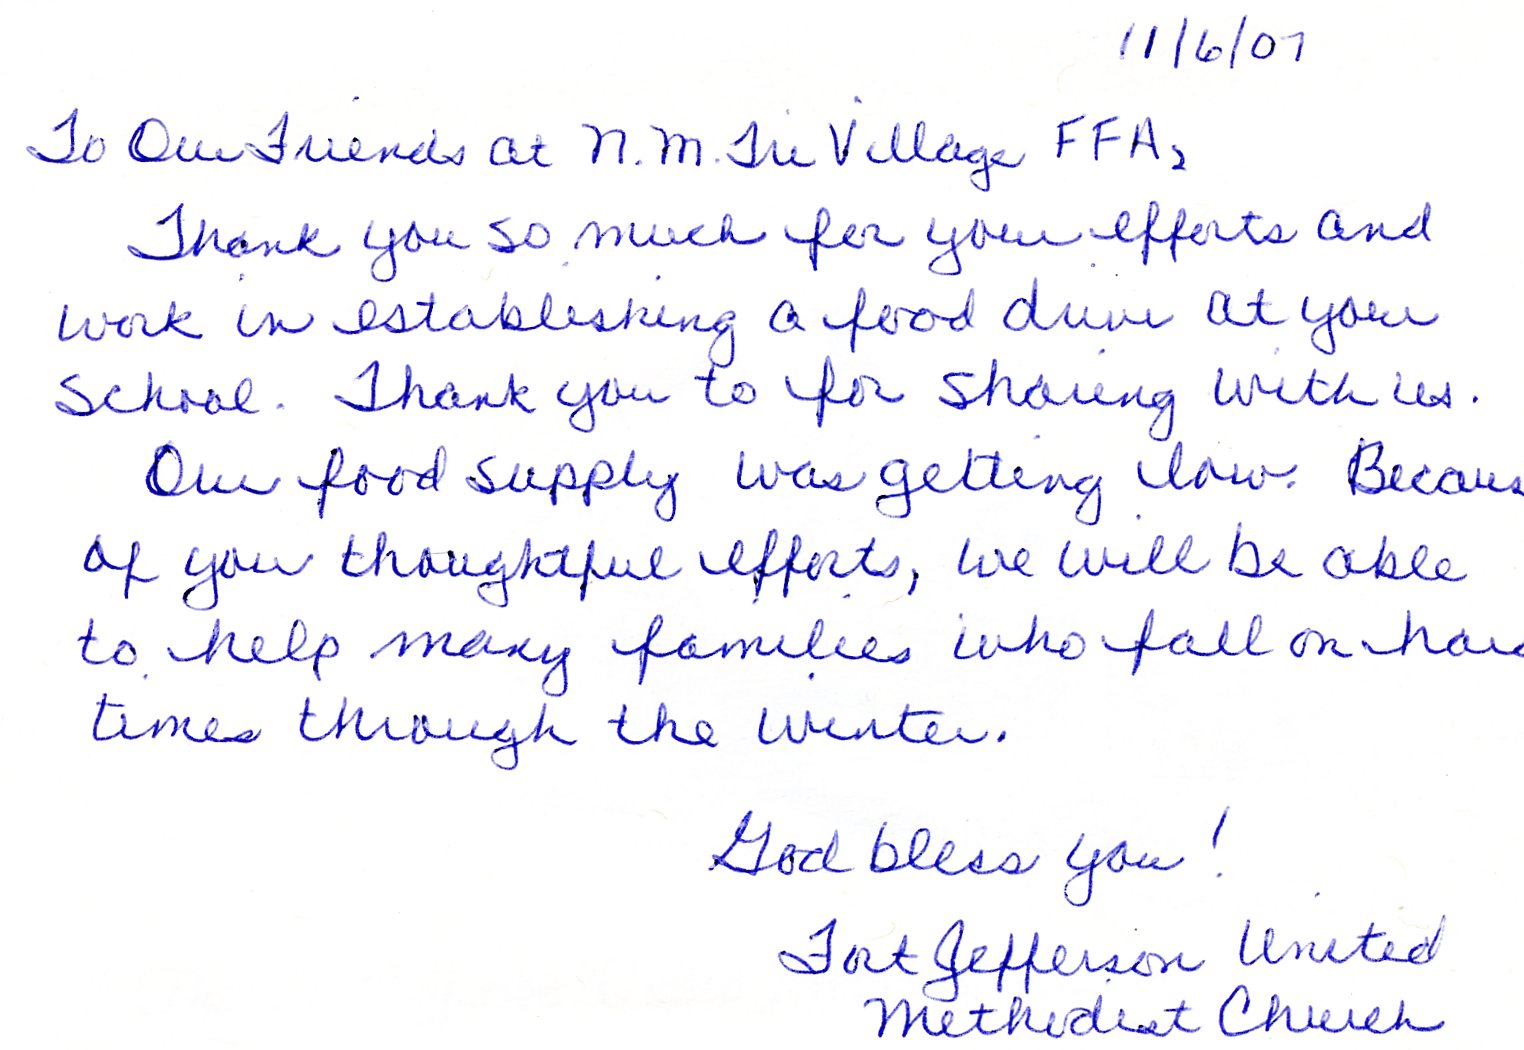 11/6/07
To Our Friends at N.M. Tri Village FFA,
Thank you so much for your efforts and
work in establishing a food drive at your
school. Thank you to for sharing with us.
Our food supply was getting low. Becaus
of your thoughtful efforts, we will be able
to help many families who fall on hard
times through the winter.
God bless you!
Fort Jefferson United
Methodist Church